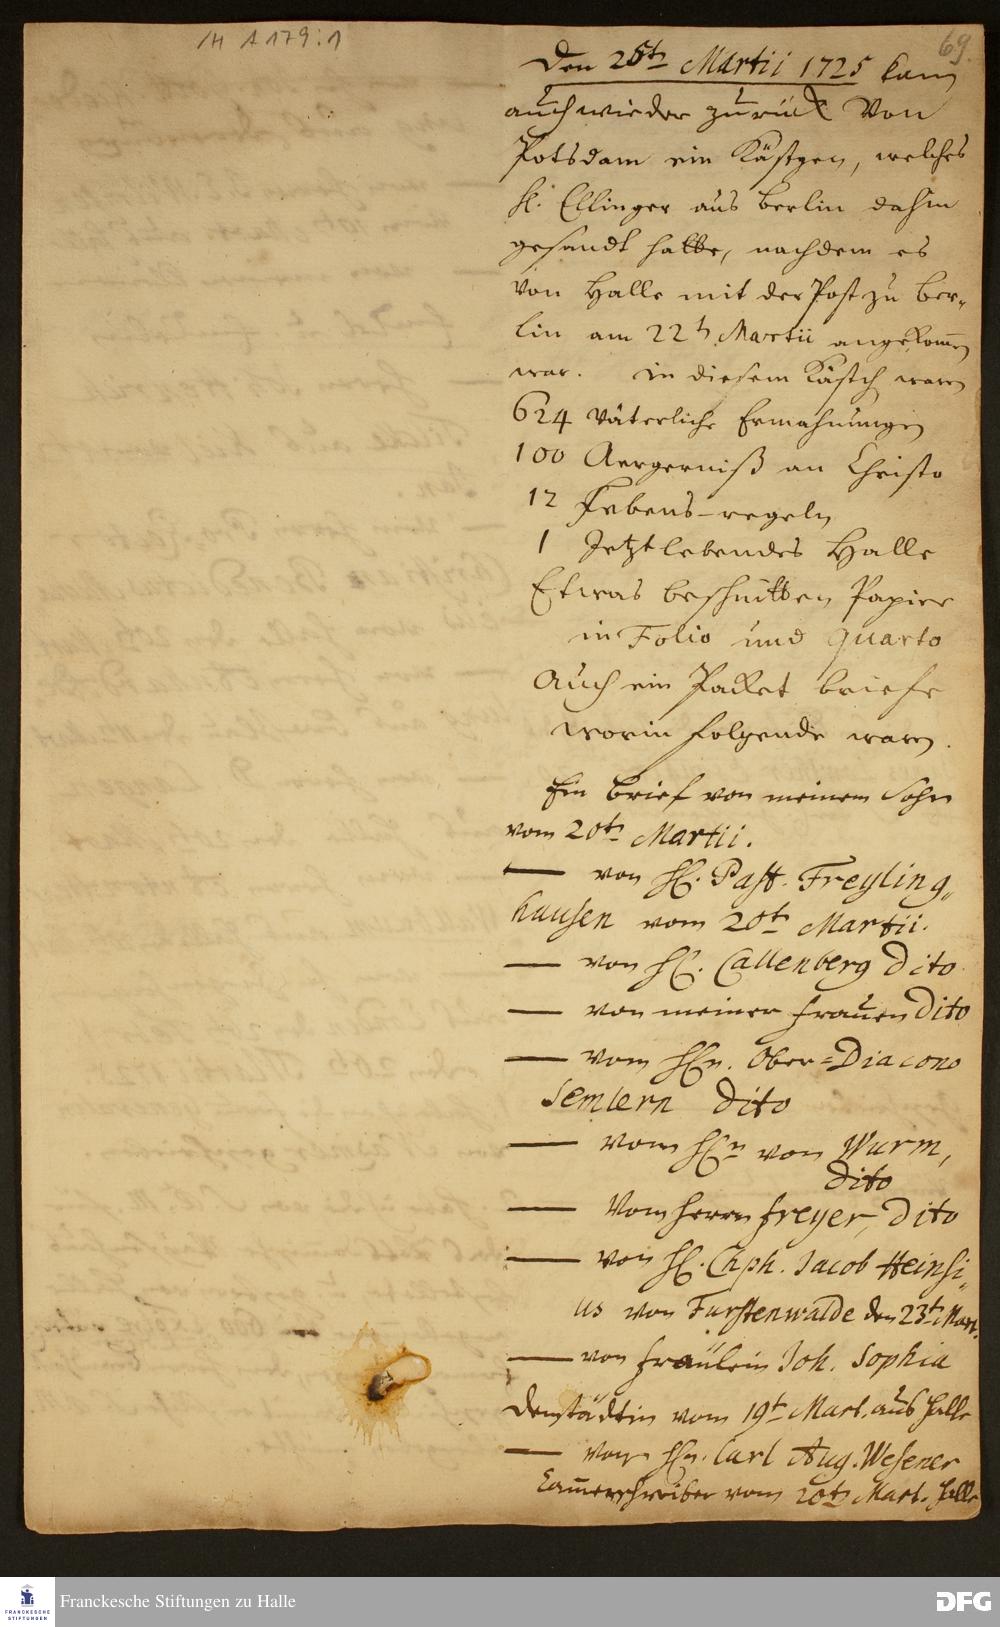 /H A 179:1
69.
Den 25t. Martii 1725 kam
auch wieder zurück Von
Potsdam ein Kästgen, welches
H. Ellinger aus Berlin dahin
gesandt hatte, nachdem es
Von Halle mit der Post zu Ber-
lin am 22t. Martii angekom̄en
war. in diesem Kästch waren
624 Väterliche Ermahnungen
100 Aergerniß an Christo
12 Lebens-regeln
1 Jetztlebendes Halle
Etwas beschnitten Papier
in Folio und Quarto
Auch ein Packet briefe
worin folgende waren.
Ein brief von meinem Sohn
vom 20t. Martii.
— von H. Past. Freyling-
hausen vom 20t. Martii.
— von H. Callenberg Dito
— von meiner Frauen Dito
— vom Hn. Ober=Diacono
Semlern Dito
— vom Hn von Wurm,
Dito
— Vom Herrn Freyer, Dito
— von H. Chph. Jacob Heinsi-
us von Furstenwalde den 23t. Mart.
— von Fräulein Joh. Sophia
Denstädtin vom 19t. Mart. aus Halle
— von Hn. Carl Aug. Wesener
Cam̄erschreiber vom 20t. Mart. Halle
FRANCKESCHE
STIFTUNGEN
Franckesche Stiftungen zu Halle
DFG